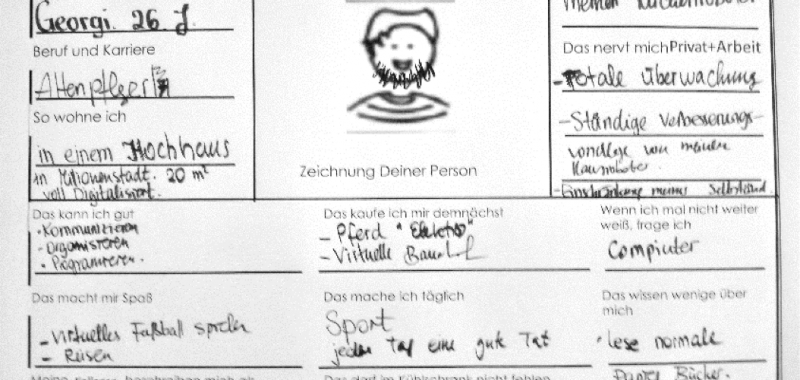 Georgi. 26 J.
Beruf und Karriere
Altenpfleger
So wohne ich
in einem Hochhaus
in Milionenstadt. 20 m²
voll Digitalisiert.
Zeichnung Deiner Person
meinen
Das nervt michPrivat+Arbeit
- Totale überwachung
- Ständige Verbesserungs-
von meinen
- Einschränkung meines
Das kann ich gut
• Kommunizieren
- Organisieren
• Programieren.
Das kaufe ich mir demnächst
- Pferd "Elektro"
- Virtuelle
Wenn ich mal nicht weiter
weiß, frage ich
Compiuter
Das macht mir Spaß
- virtuelles Fußball spielen
- Reisen
Das mache ich täglich
Sport
jeden Tag eine gute Tat
Das wissen wenige über
mich
• lese normale
Papier Bücher.
Das darf im Kühlschrank nicht fehlen